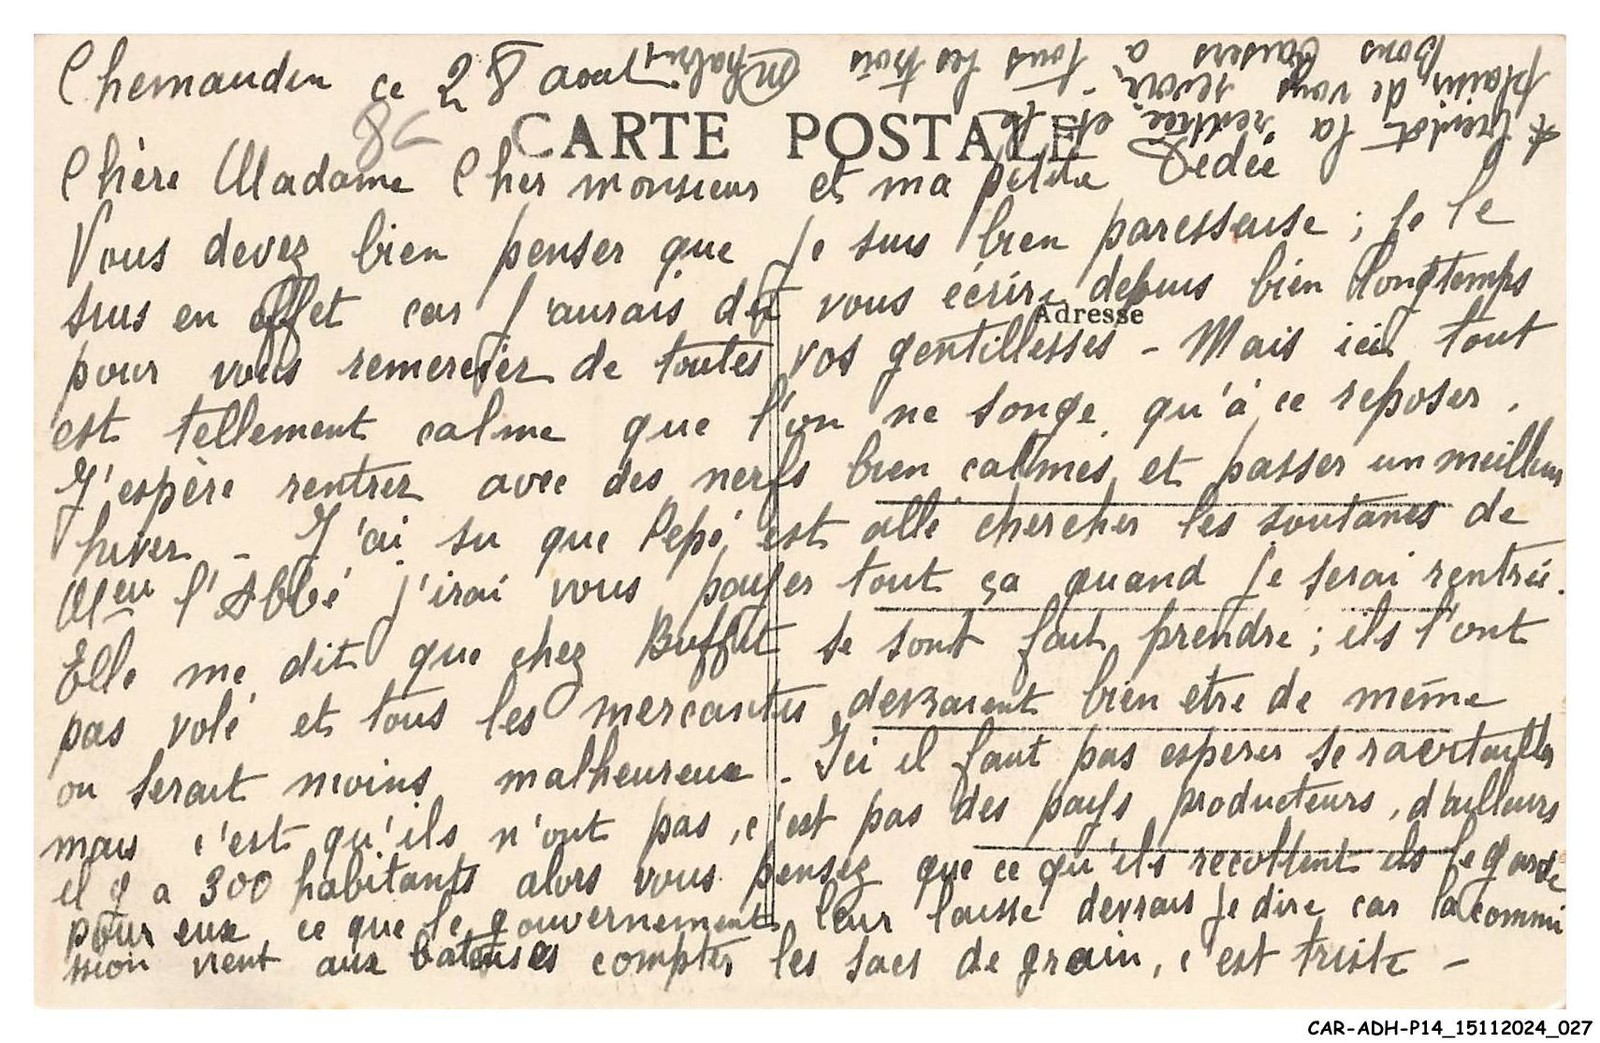 Chemaudin ce 28 aout.
8€
CARTE POSTALE
Adresse
Chère Madame Cher monsieur et ma petite Dédée
Vous devez bien penser que je suis bien paresseuse ; Je le
suis en effet car j'aurais dû vous écrire depuis bien longtemps
pour vous remercier de toutes vos gentillesses - Mais ici tout
est tellement calme que l'on ne songe qu'à ce reposer.
J'espère rentrer avec des nerfs bien calmés et passer un meilleur
hiver - J'ai su que Pepé est allé chercher les soutanes de
l'Abbé j'irai vous payer tout ça quand je serai rentrée.
Elle me dit que chez Buffet se sont fait prendre ; ils l'ont
pas volé et tous les mercantis devraient bien etre de même
on serait moins malheureux - Ici il faut pas esperer se
mais c'est qu'ils n'ont pas, c'est pas des pays producteurs, d'ailleurs
il y a 300 habitants alors vous pensez que ce qu'ils recoltent ils le garde
pour eux ce que le gouvernement leur laisse devrais je dire car la commi
ssion vient aux batteuses compter les sacs de grain, c'est triste -
bientot la rentrée et le
plaisir de vous revoir.
Bons baisers a tous les trois
CAR-ADH-P14_15112024_027